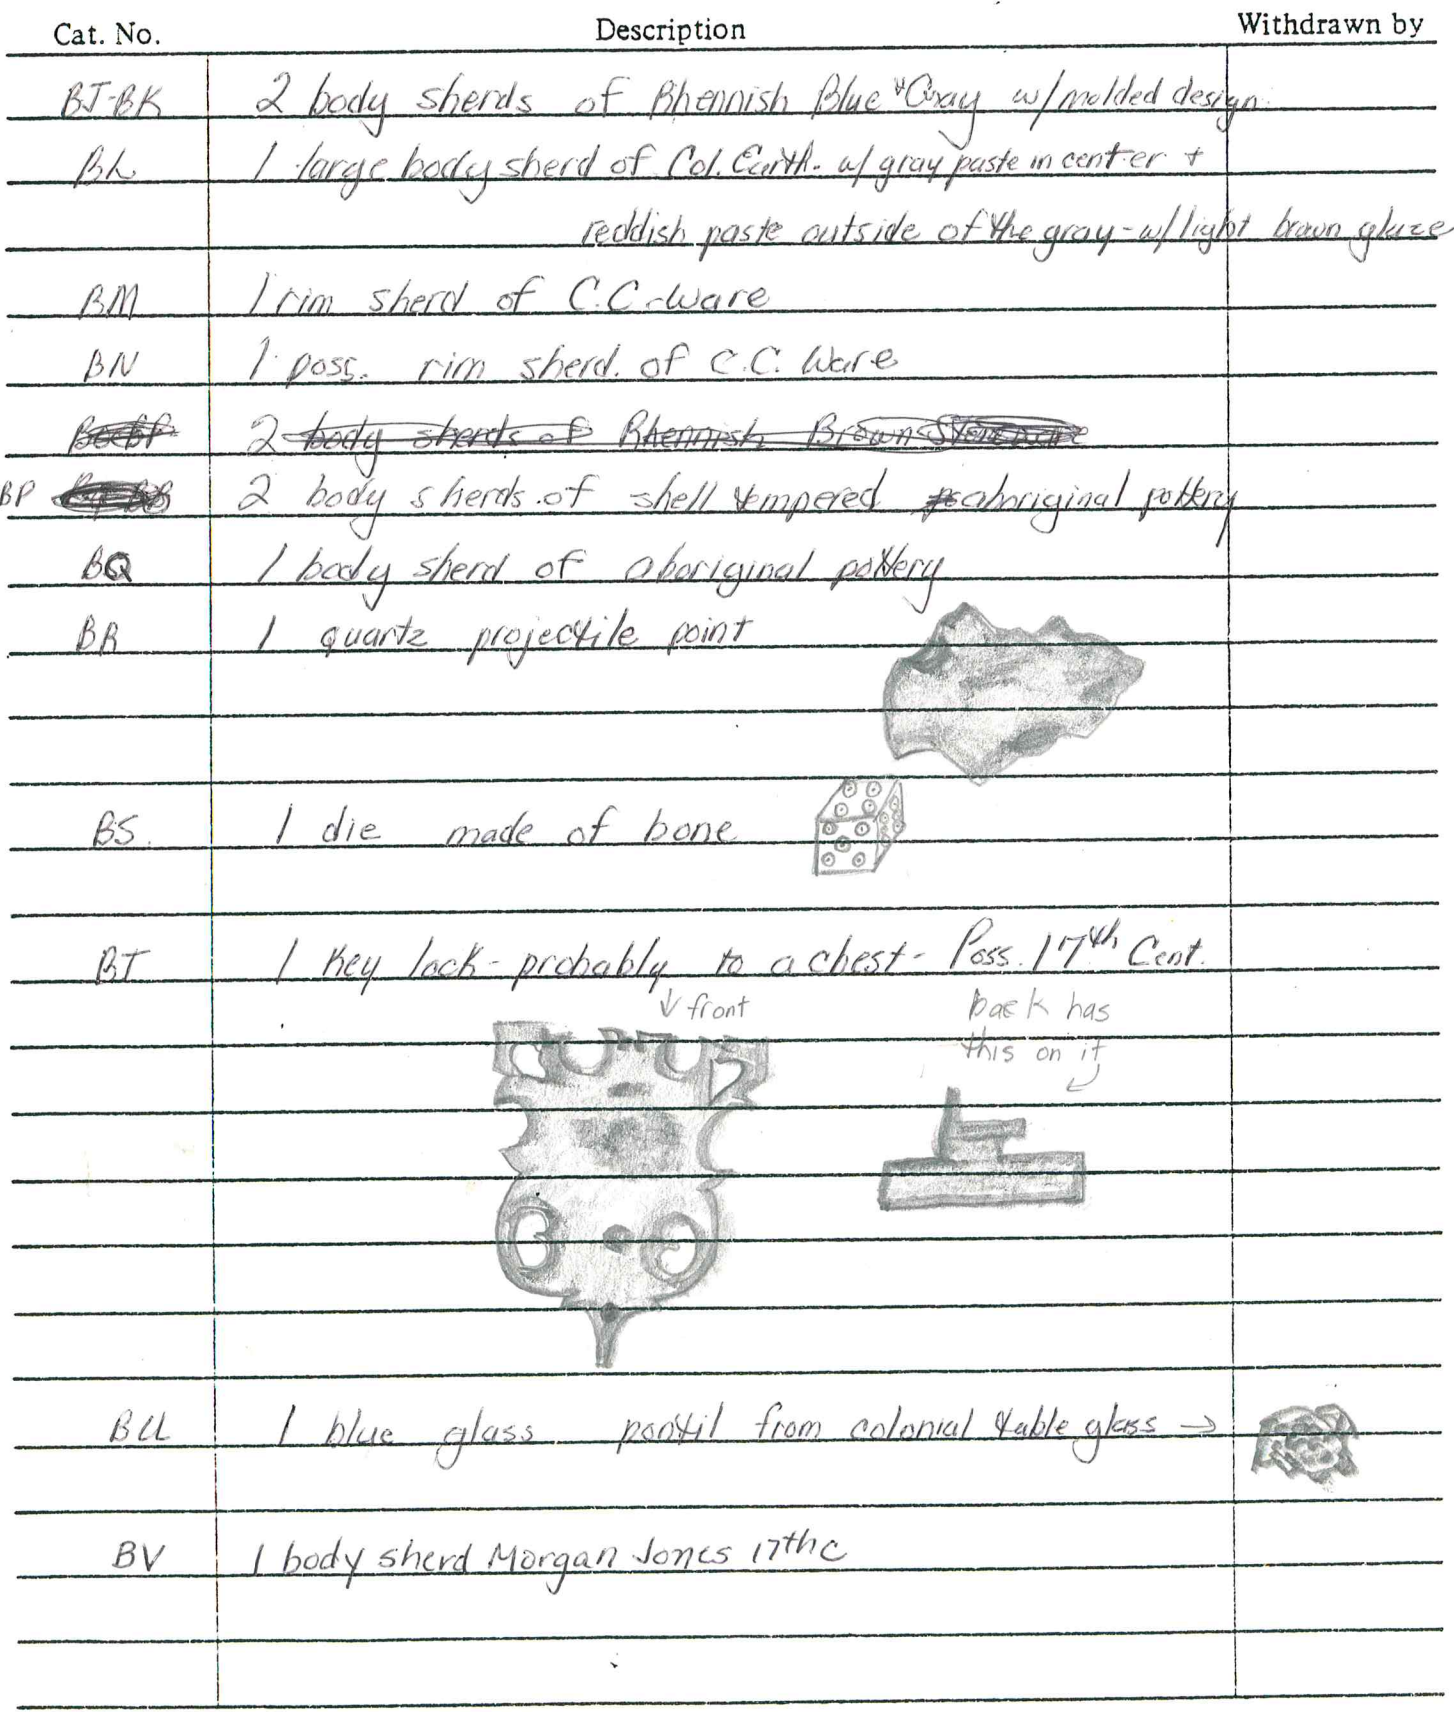 Cat. No. Description Withdrawn by
BJ-BK 2 body sherds of Rhennish Blue + Gray w/molded design
BL 1 large body sherd of Col. Earth. w/ gray paste in center +
reddish paste outside of the gray - w/light brown glaze
BM 1 rim sherd of C.C. Ware
BN 1 poss. rim sherd. of C.C. Ware
2 body sherds of Rhennish Brown Stoneware
BP 2 body sherds of shell tempered aboriginal pottery
BQ 1 body sherd of aboriginal pottery
BR 1 quartz projectile point
BS. 1 die made of bone
BT 1 Key lock - probably to a chest - Poss. 17th Cent.
↓ front back has
this on it
BU 1 blue glass pontil from colonial table glass →
BV 1 body sherd Morgan Jones 17th C